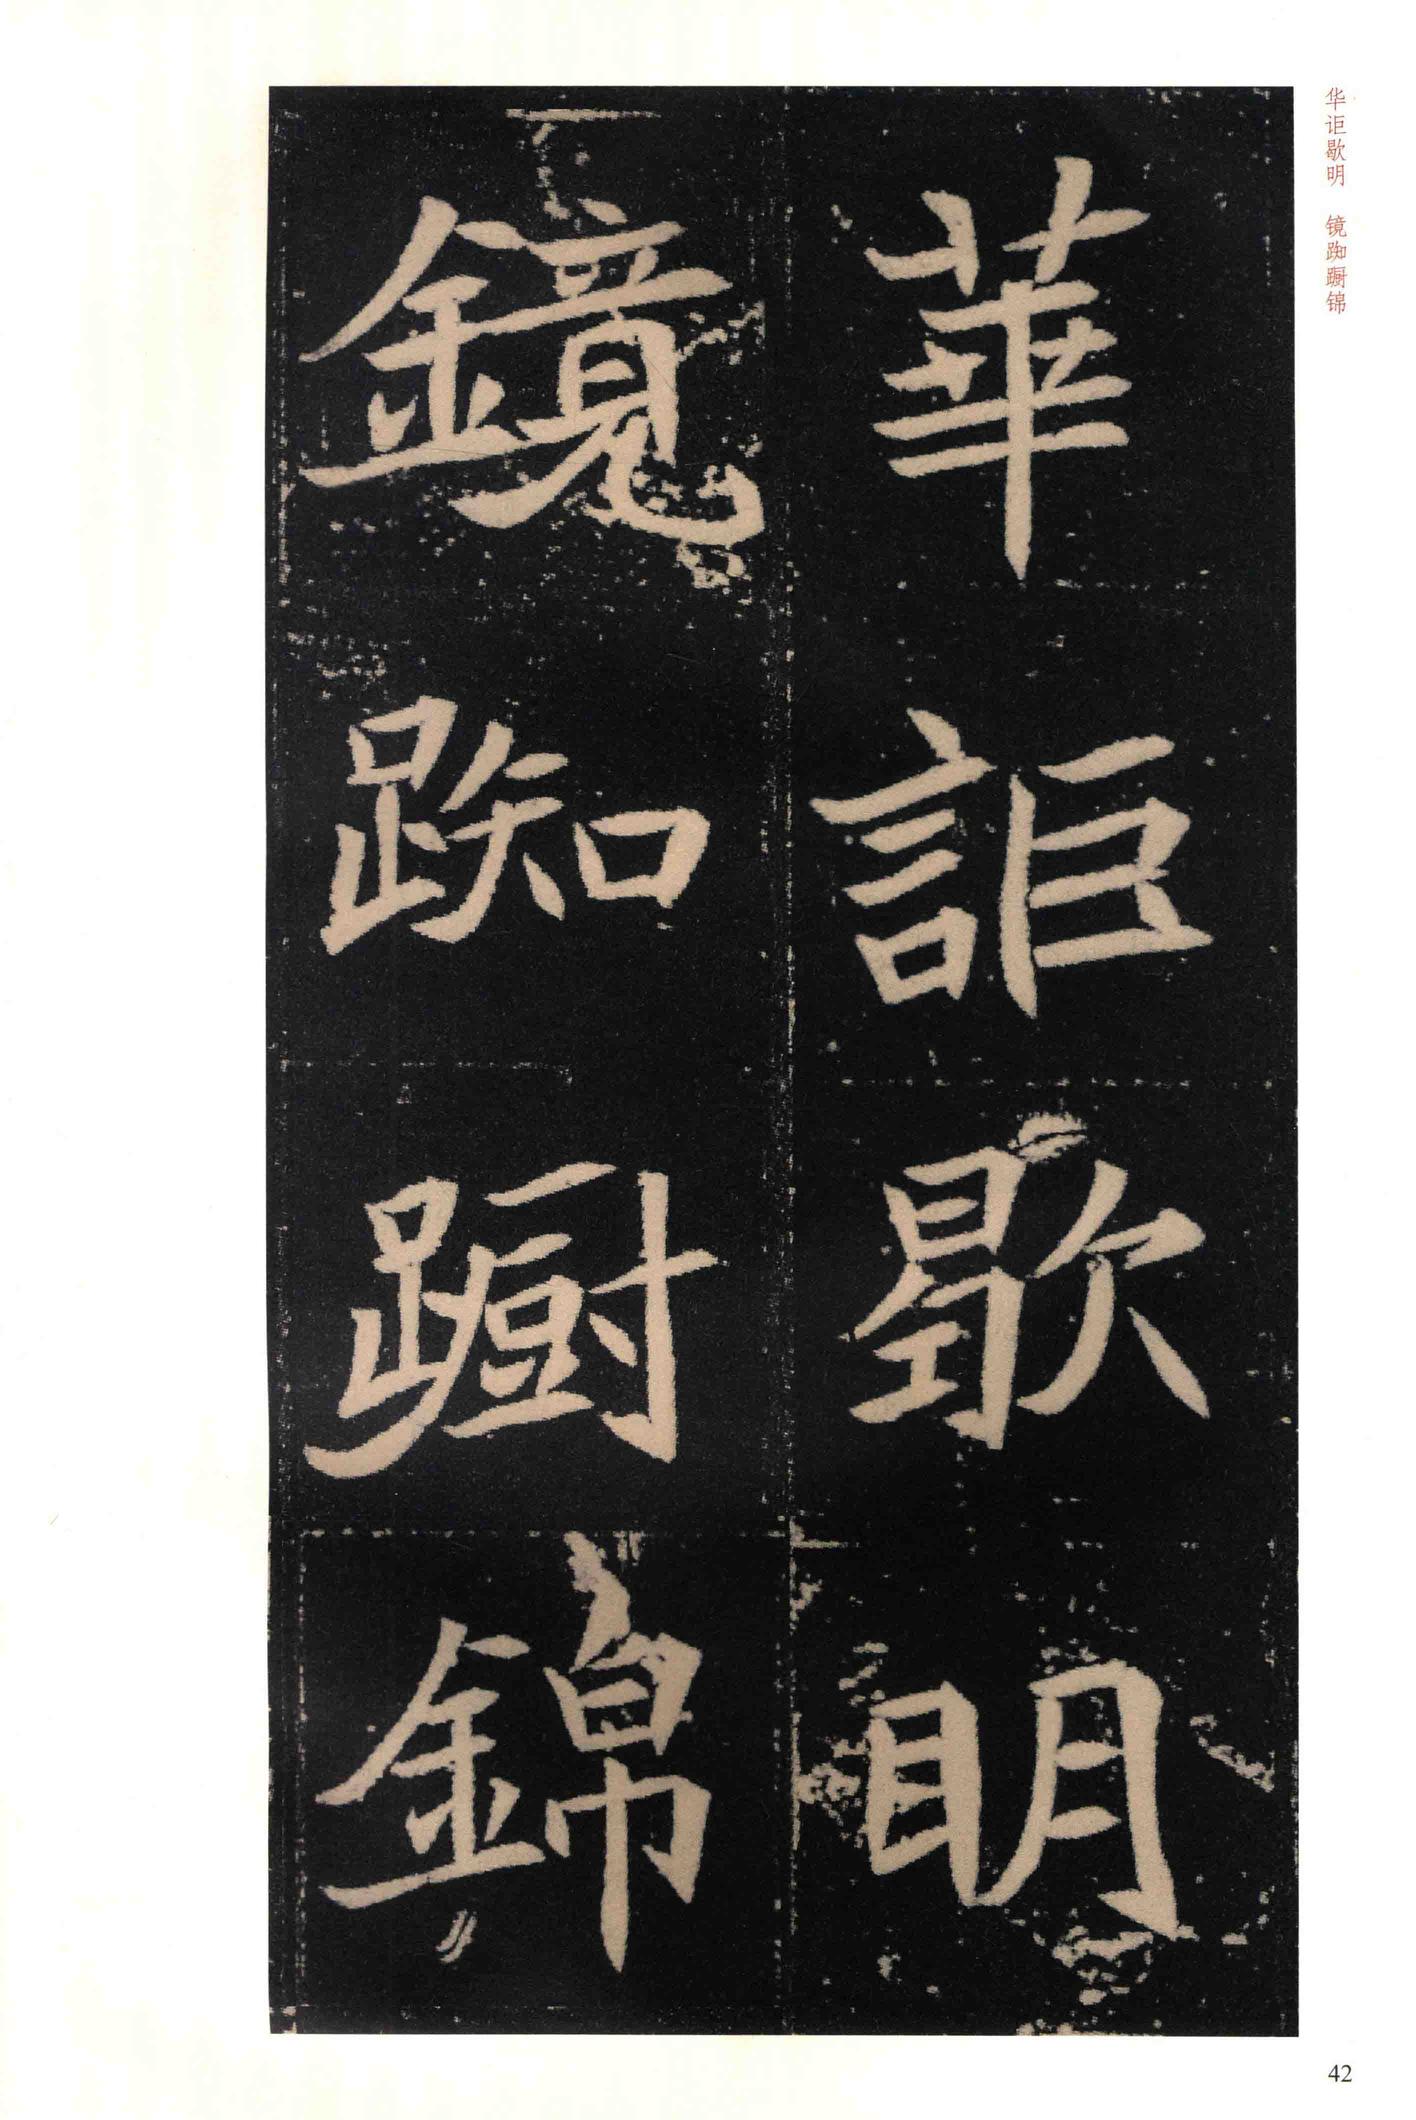 华讵歇明　镜踟蹰锦
華詎歇明
鏡踟蹰錦
42